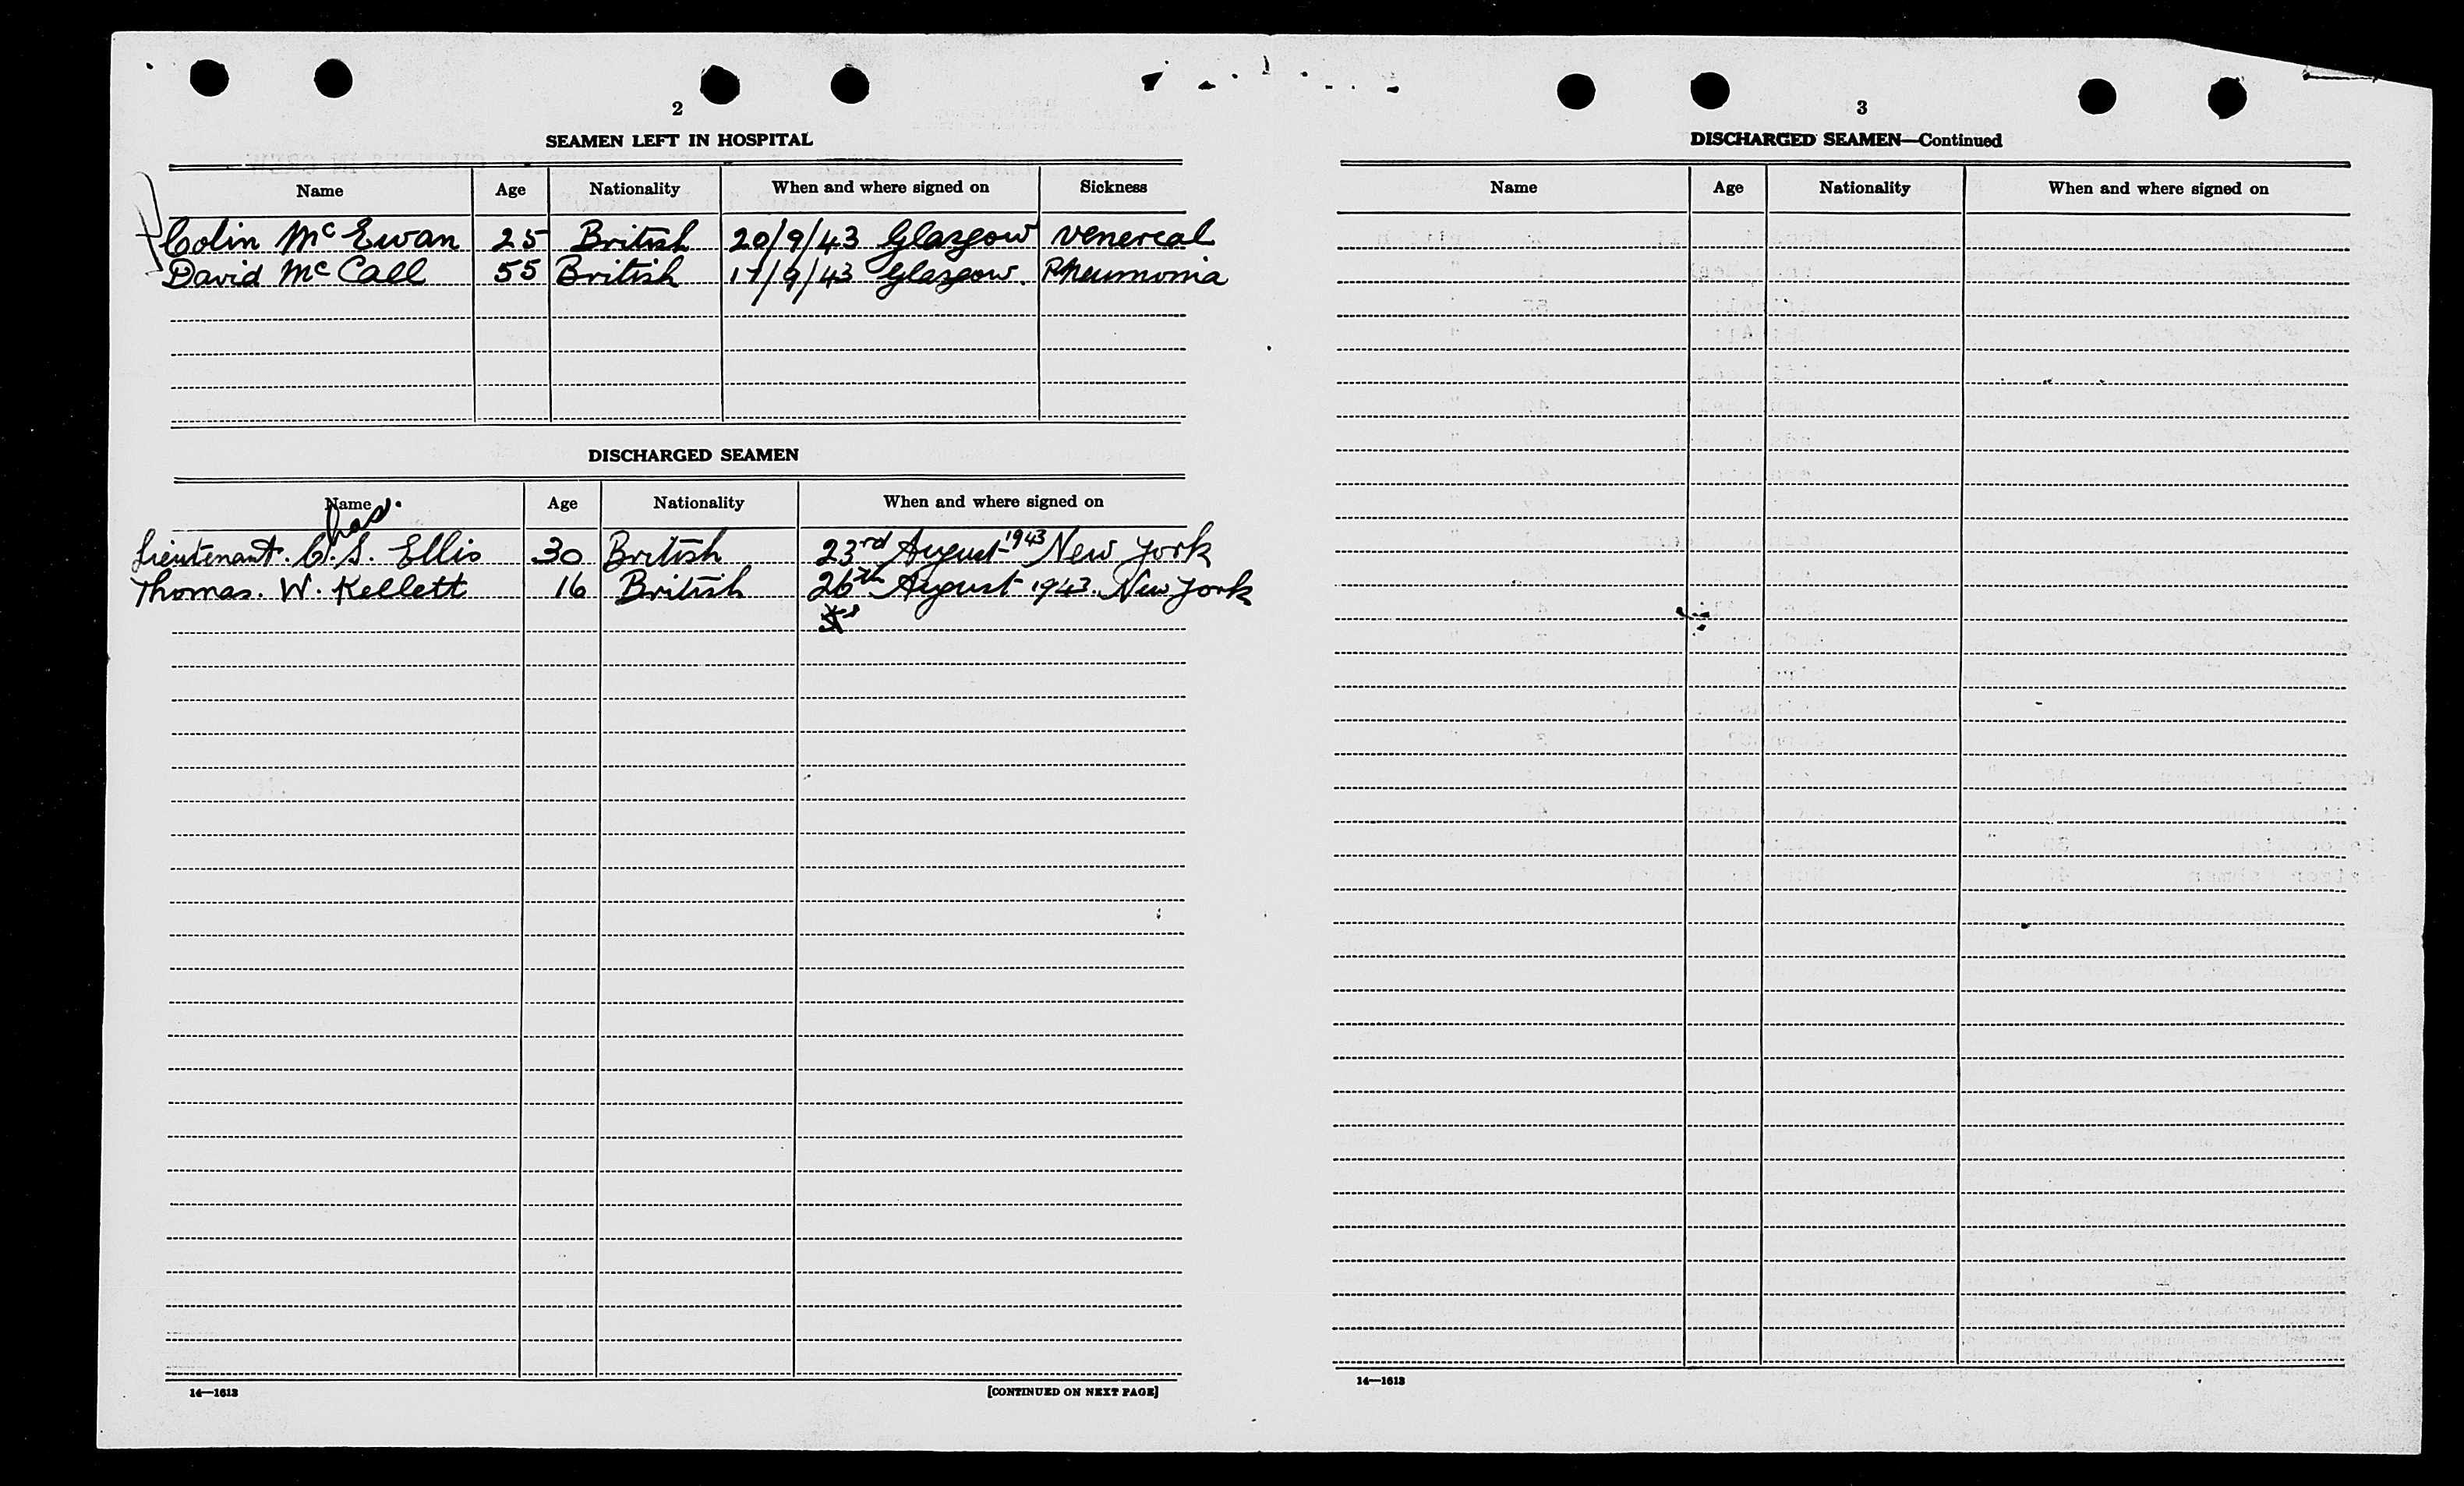 2
SEAMEN LEFT IN HOSPITAL
Name Age Nationality When and where signed on Sickness
Colin Mc Ewan 25 British 20/9/43 Glasgow venereal
David Mc Call 55 British 17/9/43 Glasgow. Pneumonia
DISCHARGED SEAMEN
Name Age Nationality When and where signed on
has.
Lieutenant. C. S. Ellis 30 British 23rd August 1943 New York
Thomas. W. Kellett 16 British 26th August 1943. New York
14—1613
[CONTINUED ON NEXT PAGE]
3
DISCHARGED SEAMEN—Continued
Name Age Nationality When and where signed on
14—1613